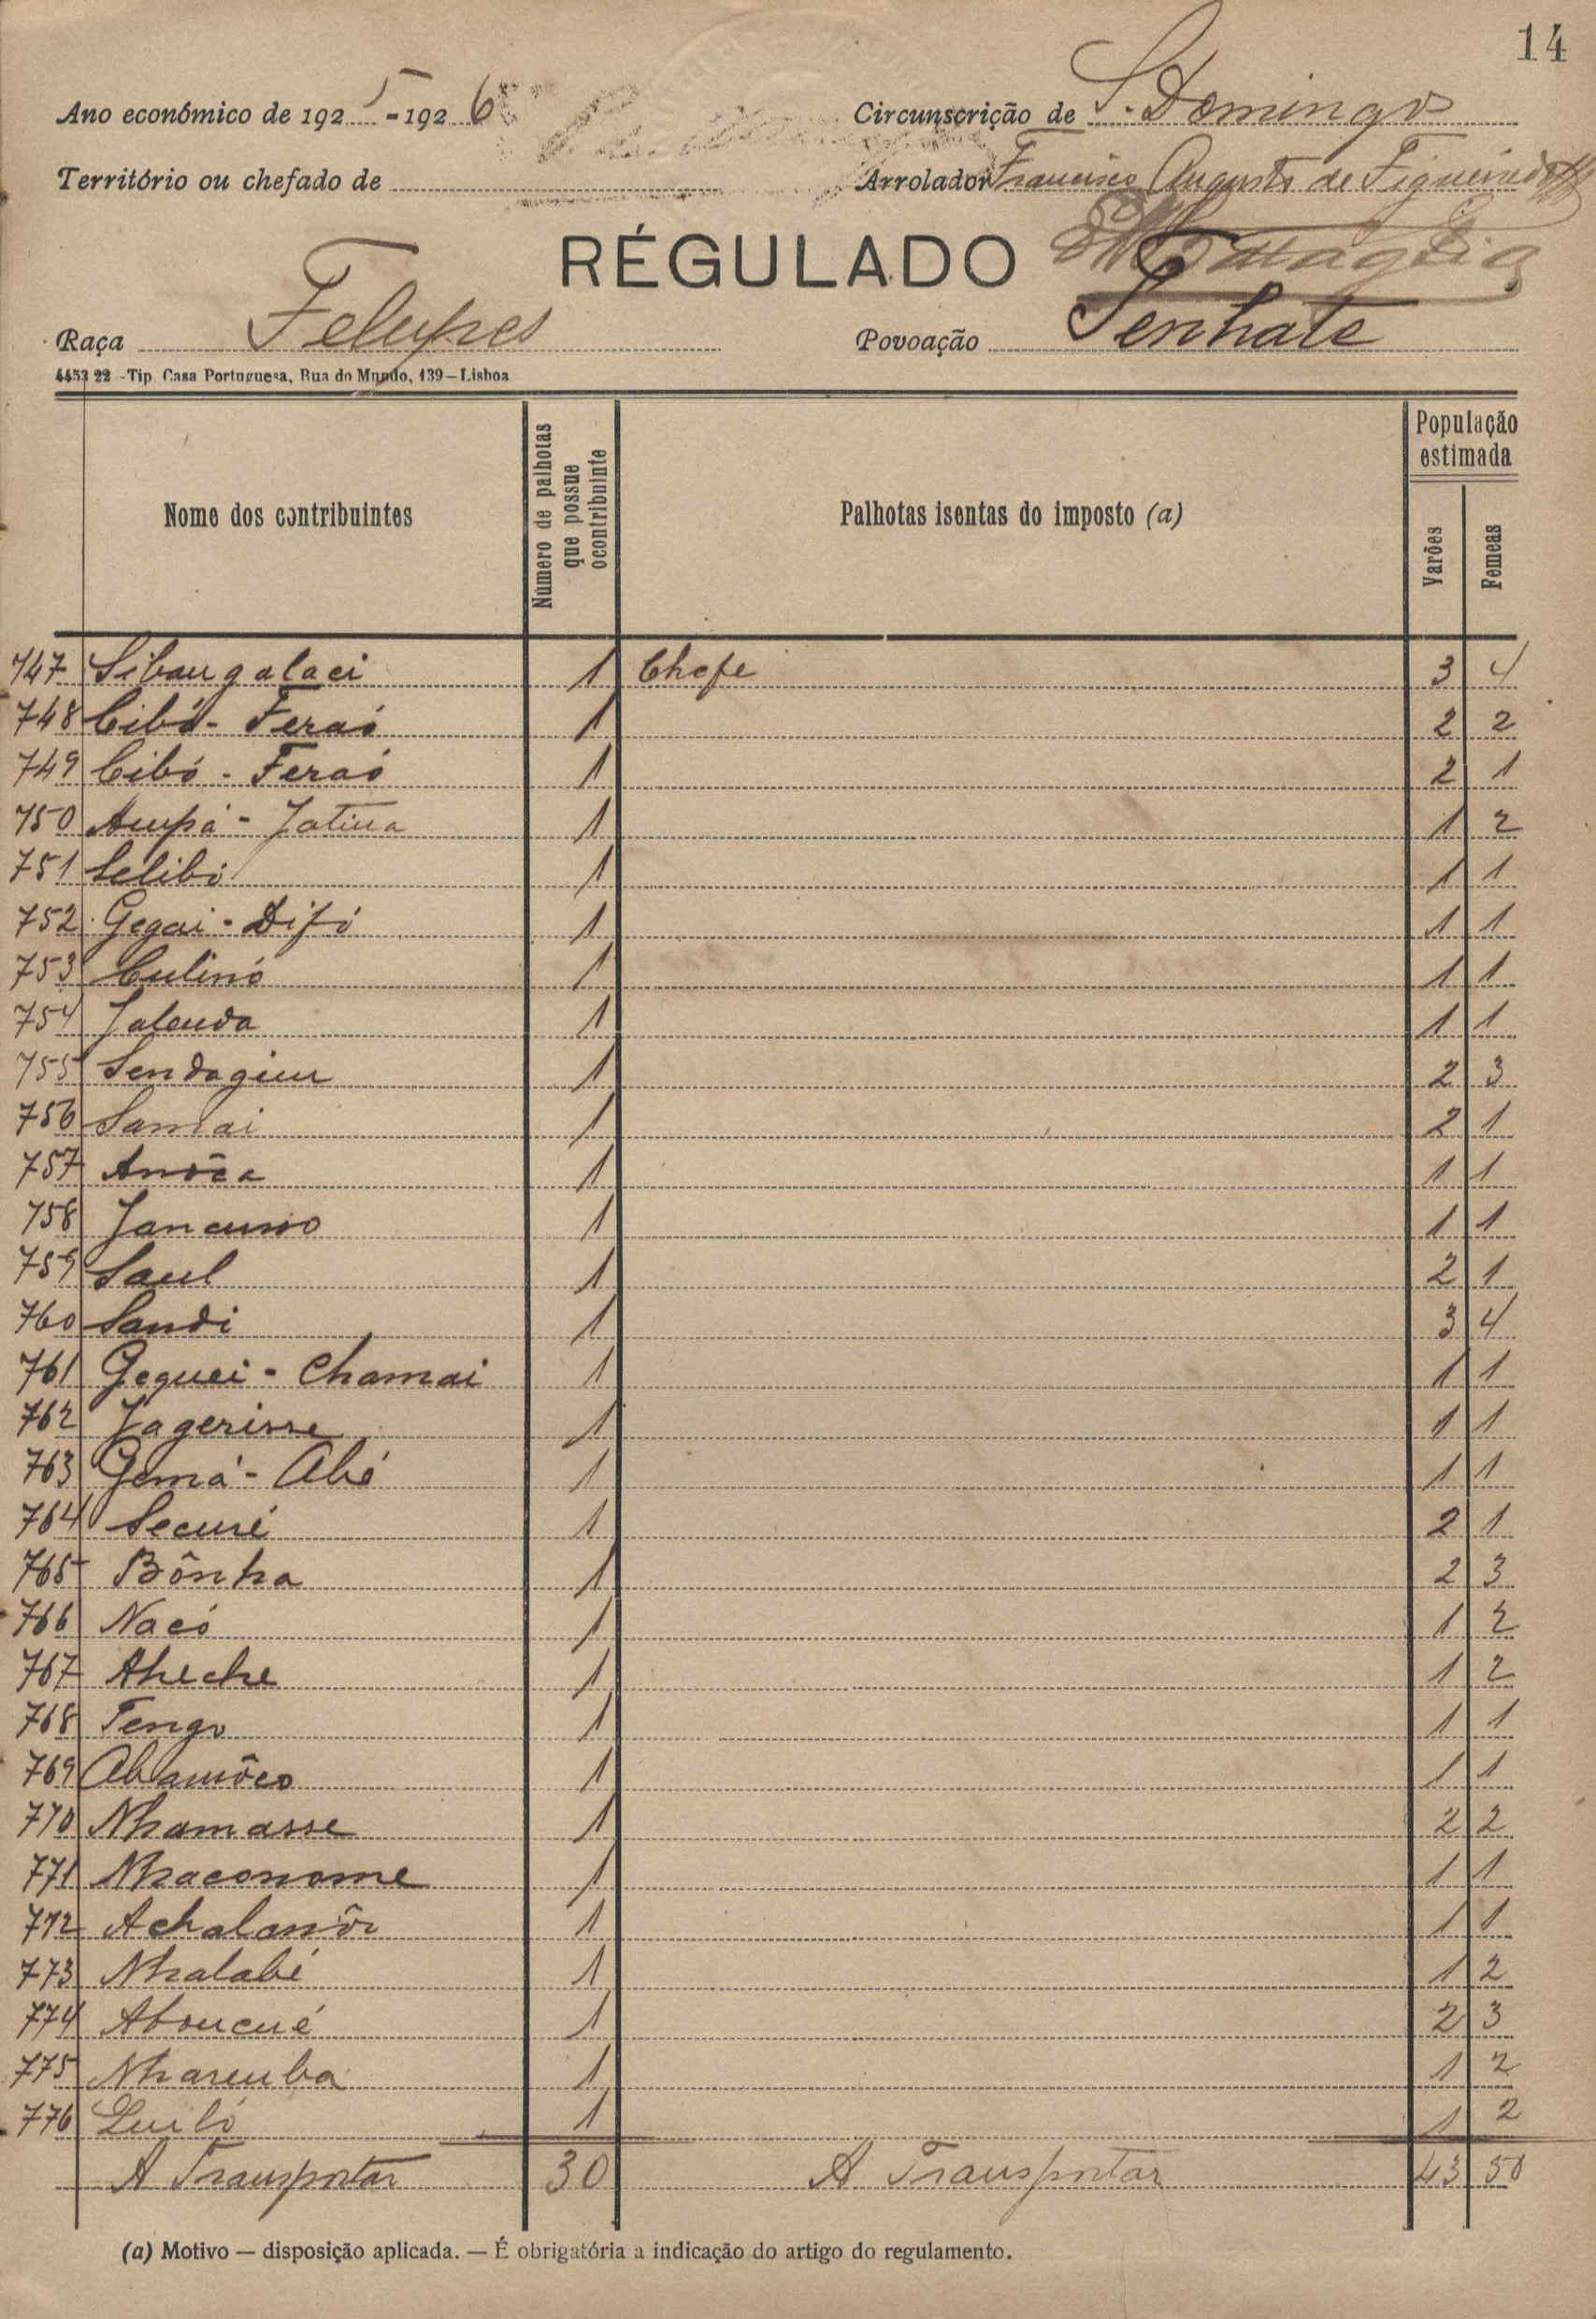 14
Ano económico de 1925-1926 Circunscrição de S. Domingos
Território ou chefado de Arrolador Francisco Augusto de Figueiredo
RÉGULADO
Raça Felupes Povoação Tenhate
4453 22 - Tip Casa Portuguesa, Rua do Mundo, 139—Lisboa
Nome dos contribuintes Número de palhotas que possue o contribuinte Palhotas isentas do imposto (a) População estimada Varões Femeas
747 Sibaugalaci 1 Chefe 3 4
748 Cibó - Feraó 1 2 2
749 Cibó - Feraó 1 2 1
750 Aupá - Jatiua 1 1 2
751 Selibó 1 1 1
752 Gegai - Difó 1 1 1
753 Culinó 1 1 1
754 Jalenda 1 1 1
755 Sendagiur 1 2 3
756 Samai 1 2 1
757 Anôca 1 1 1
758 Jancuno 1 1 1
759 Saul 1 2 1
760 Sandi 1 3 4
761 Geguei - Chamai 1 1 1
762 Jagerisse 1 1 1
763 Gomá - Abé 1 1 1
764 Securé 1 2 1
765 Bônha 1 2 3
766 Nacó 1 1 2
767 Aheche 1 1 2
768 Tengo 1 1 1
769 Abamôco 1 1 1
770 Nhamasse 1 2 2
771 Nhaconome 1 1 1
772 Achalanôr 1 1 1
773 Nhalabé 1 1 2
774 Aboucué 1 2 3
775 Nharemba 1 1 2
776 Luiló 1 1 2
A Transportar 30 A Transportar 43 50
(a) Motivo — disposição aplicada. — É obrigatória a indicação do artigo do regulamento.